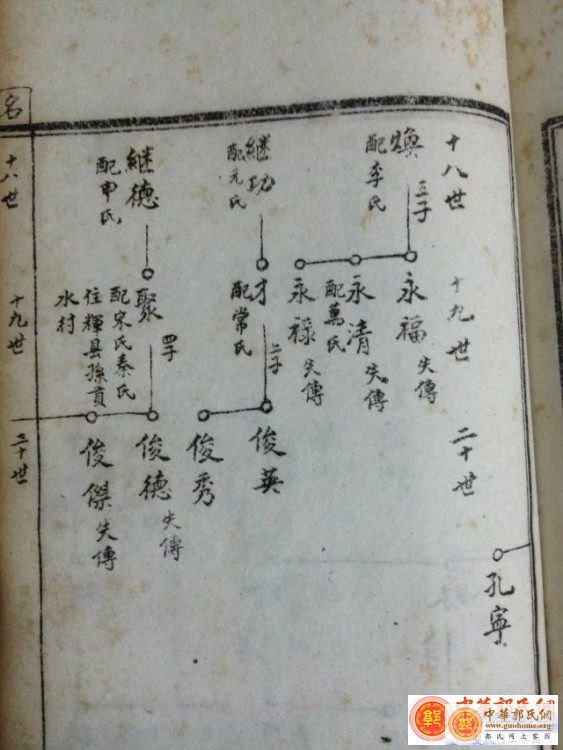 十八世
十九世
二十世
孔寧
煥
配李氏
三子
永福
失傳
永清
配萬氏
失傳
永祿
失傳
継功
配元氏
才
配常氏
二子
俊英
俊秀
継德
配申氏
聚
配宋氏秦氏
住輝县孫貢
水村
四子
俊德
失傳
俊傑
失傳
名
十八世
十九世
二十世
中華郭氏網
www.guohome.org
郭氏网上家园